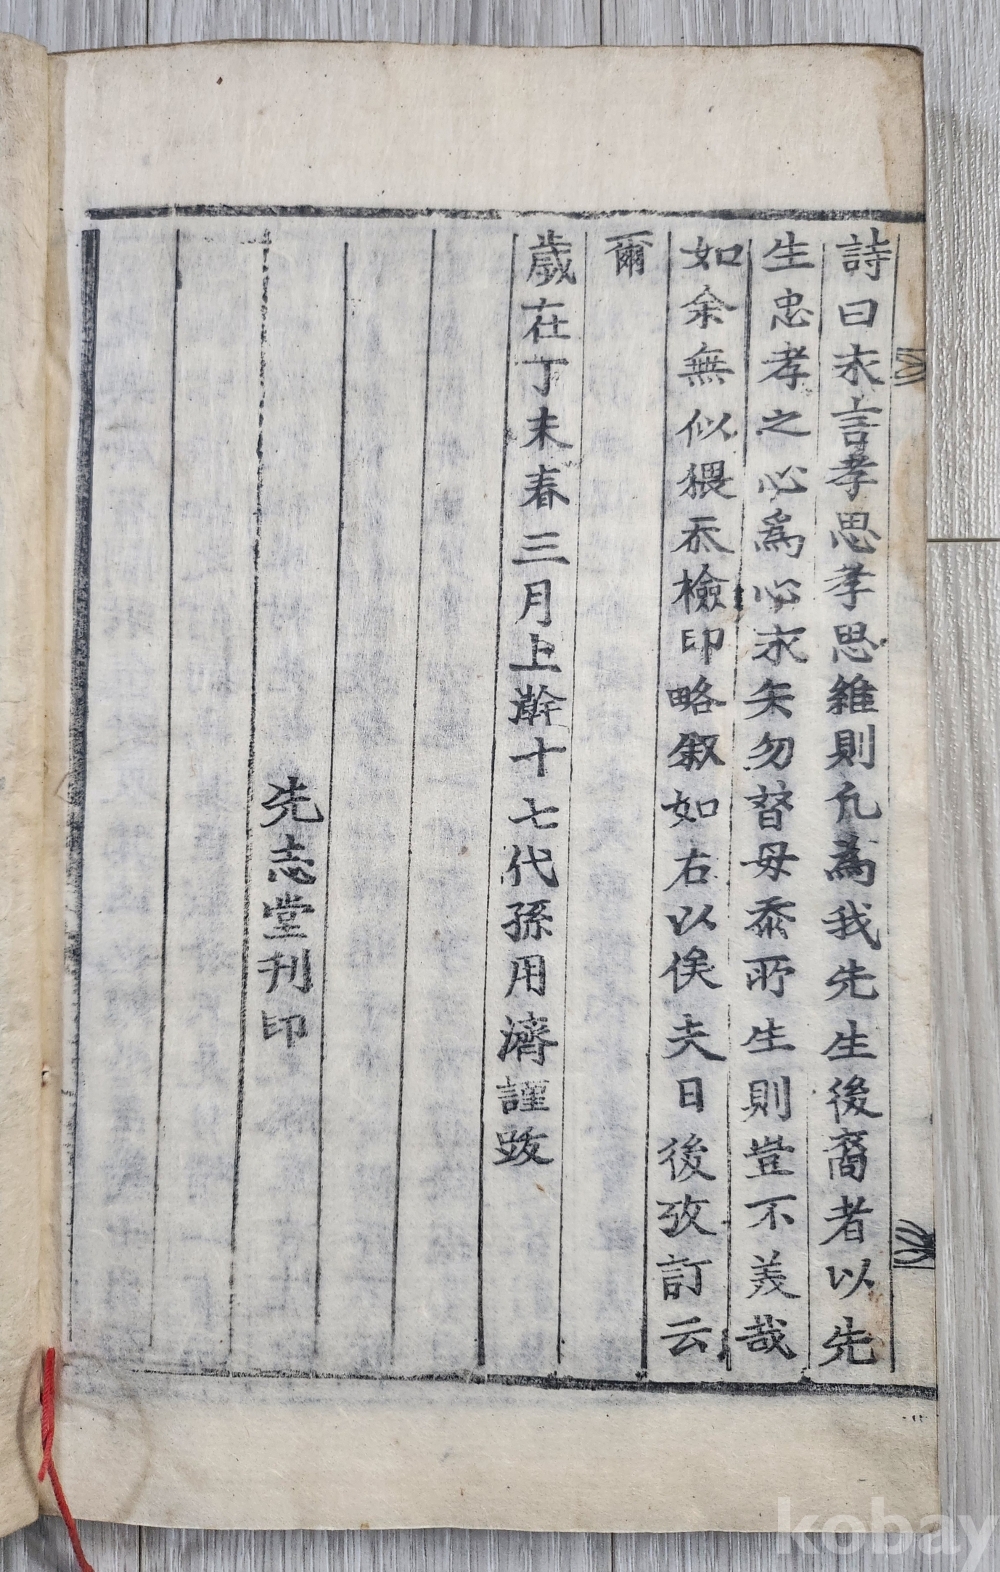 詩曰永言孝思孝思維則凡爲我先生後裔者以先
生忠孝之心爲心永矢勿替毋忝所生則豈不美哉
如余無似猥忝檢印略叙如右以俟夫日後攷訂云
爾
歲在丁未春三月上澣十七代孫用濟謹跋
先志堂刊印
kobay